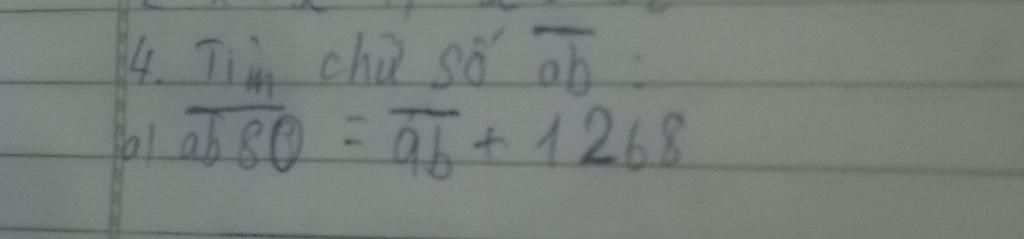 4. Tìm chữ số ab :
a) ab80 = ab + 1268